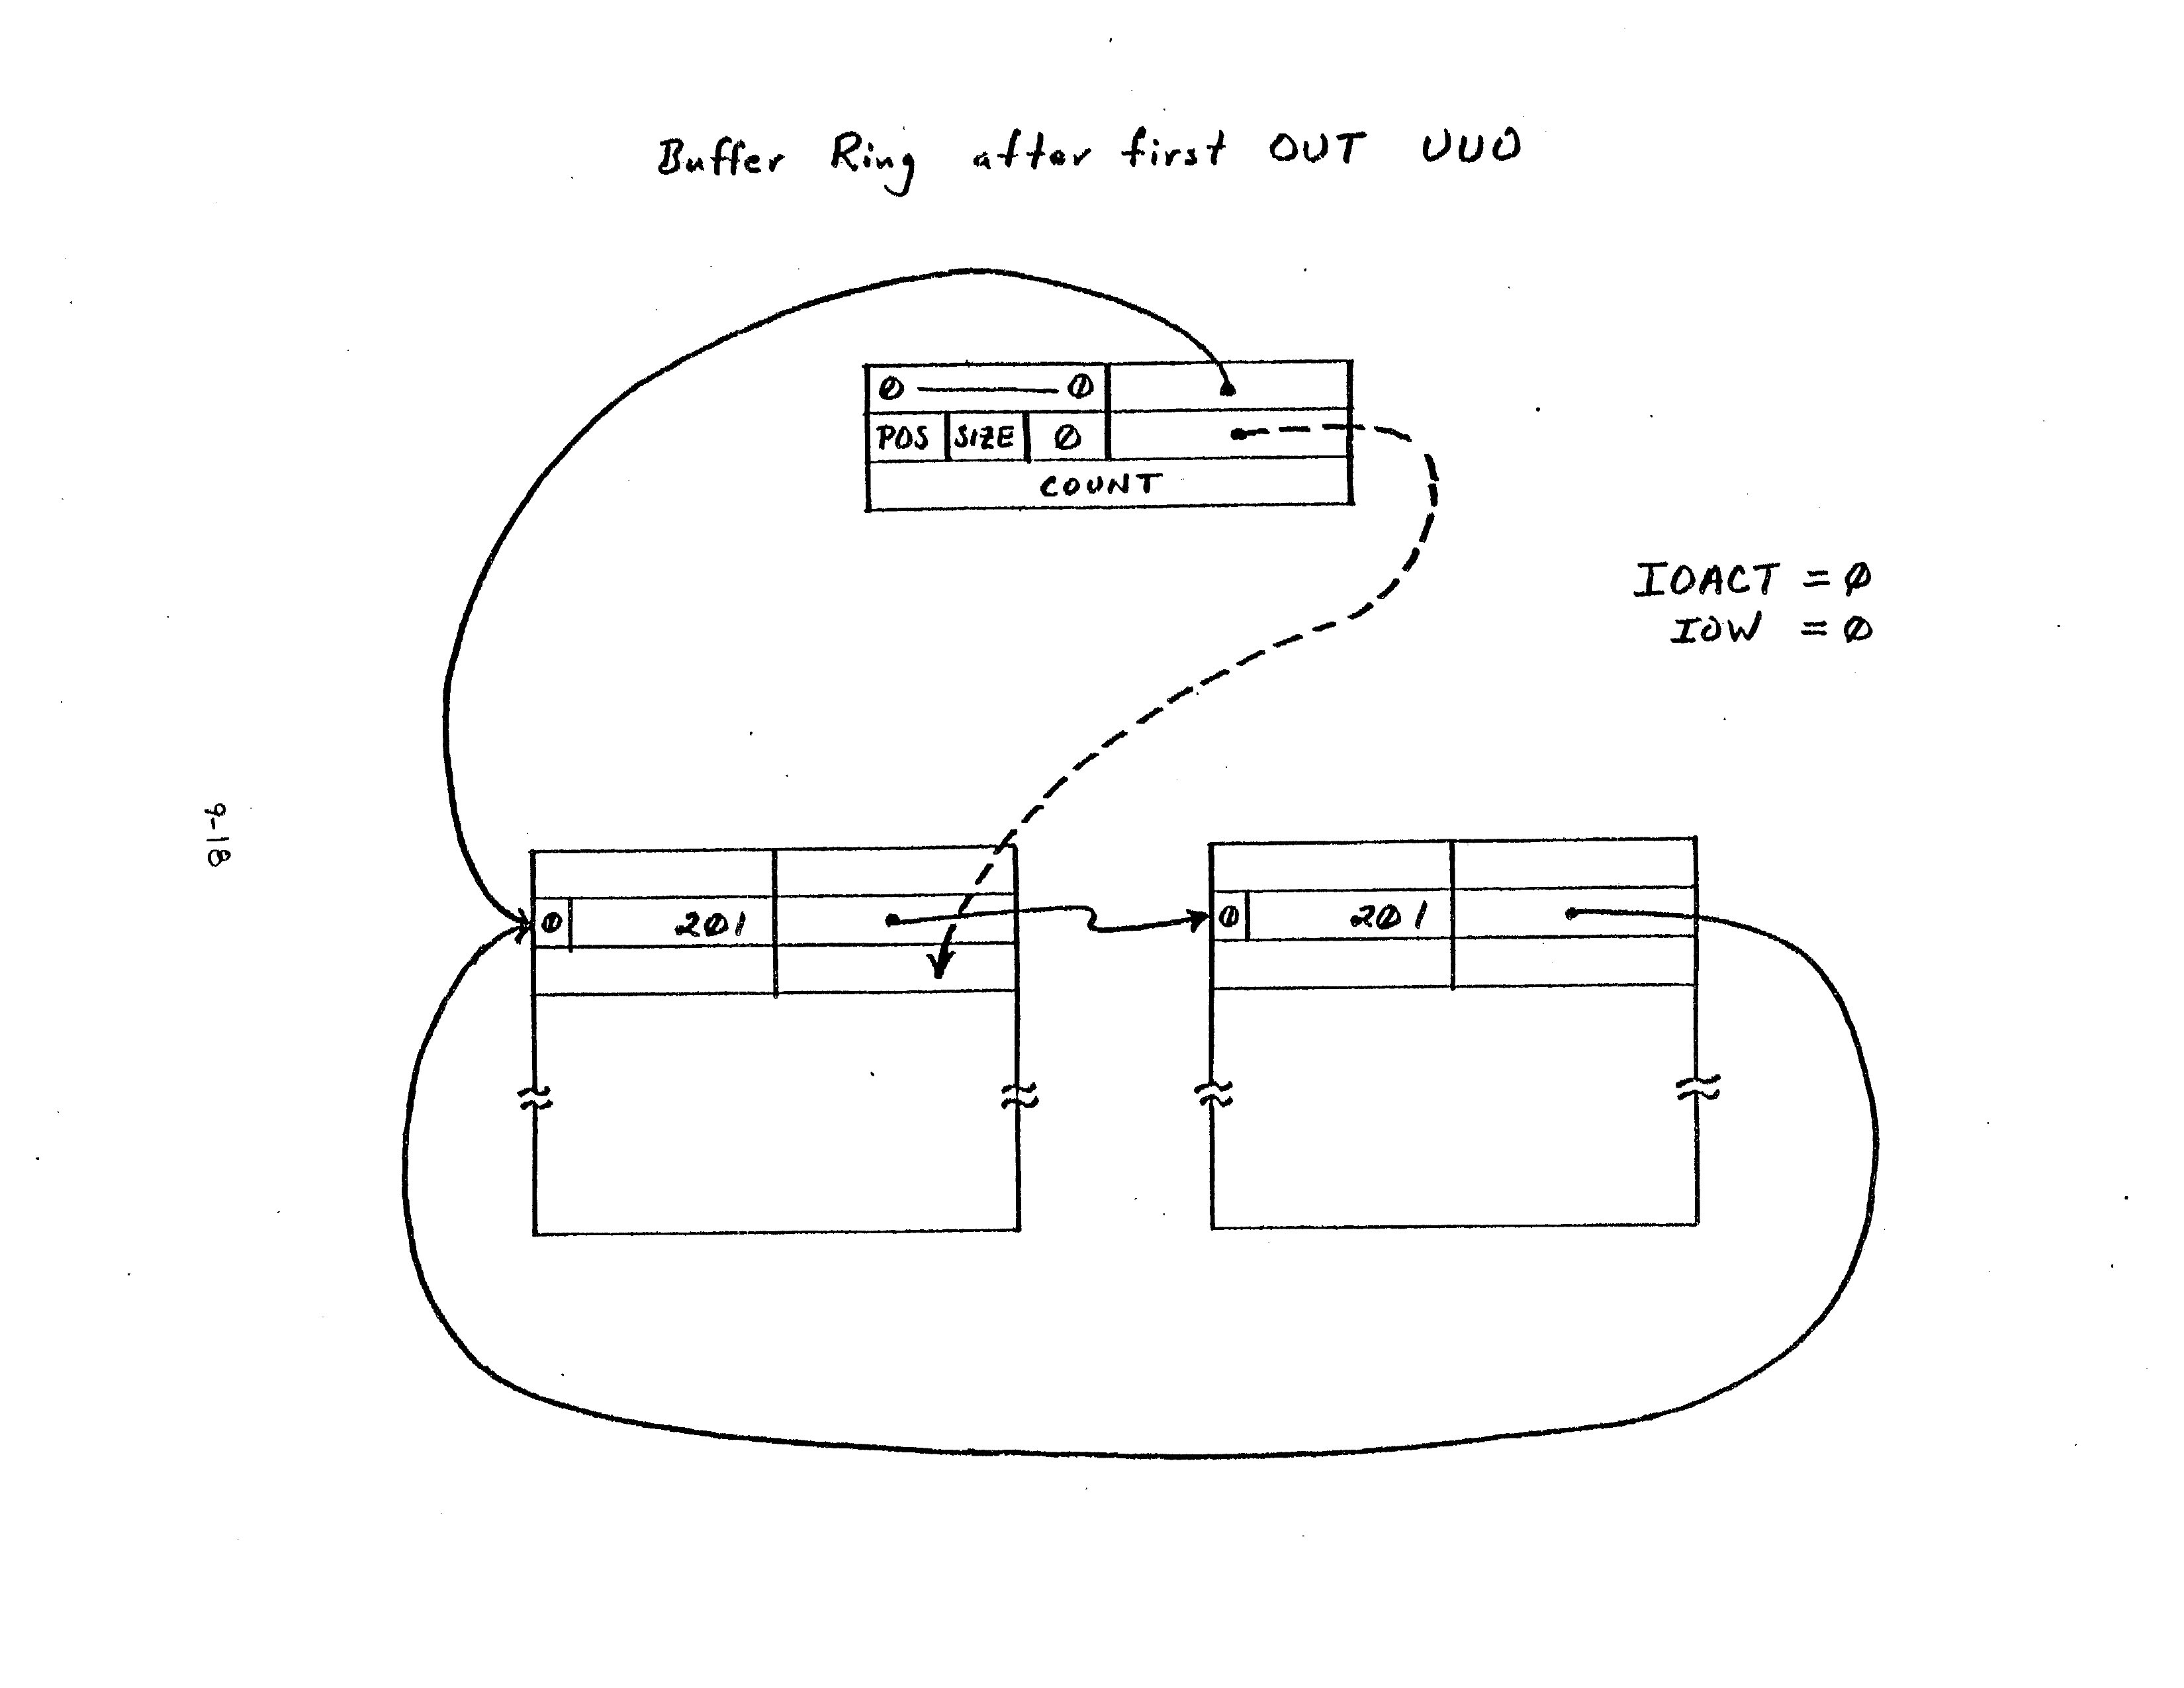 Buffer Ring after first OUT UUO
0 — 0
POS SIZE 0
COUNT
IOACT = 0
IOW = 0
0 201
0 201
9-18